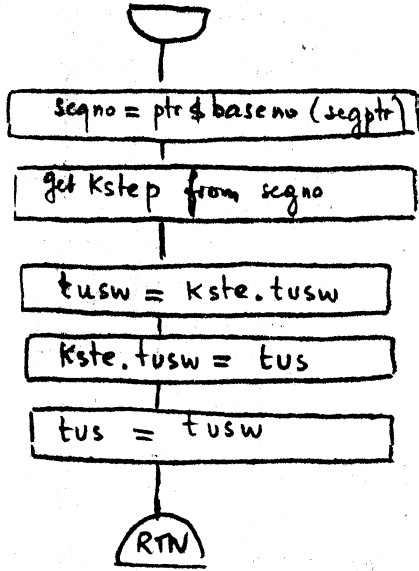 segno = ptr$baseno (segptr)
get kstep from segno
tusw = kste.tusw
kste.tusw = tus
tus = tusw
RTN